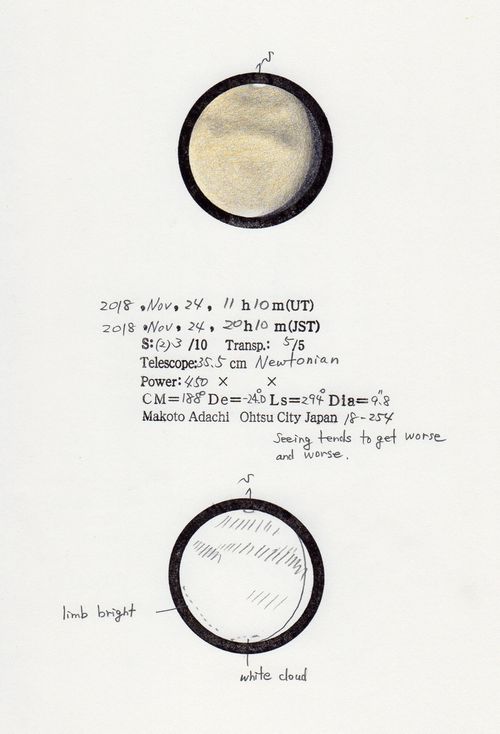 N
2018, Nov, 24, 11 h 10 m (UT)
2018, Nov, 24, 20 h 10 m (JST)
S: (2)3 /10 Transp.: 5/5
Telescope: 35.5 cm Newtonian
Power: 450 × ×
CM=188° De=-24.0° Ls=294° Dia=9".8
Makoto Adachi Ohtsu City Japan 18-254
Seeing tends to get worse
and worse.
N
limb bright
white cloud